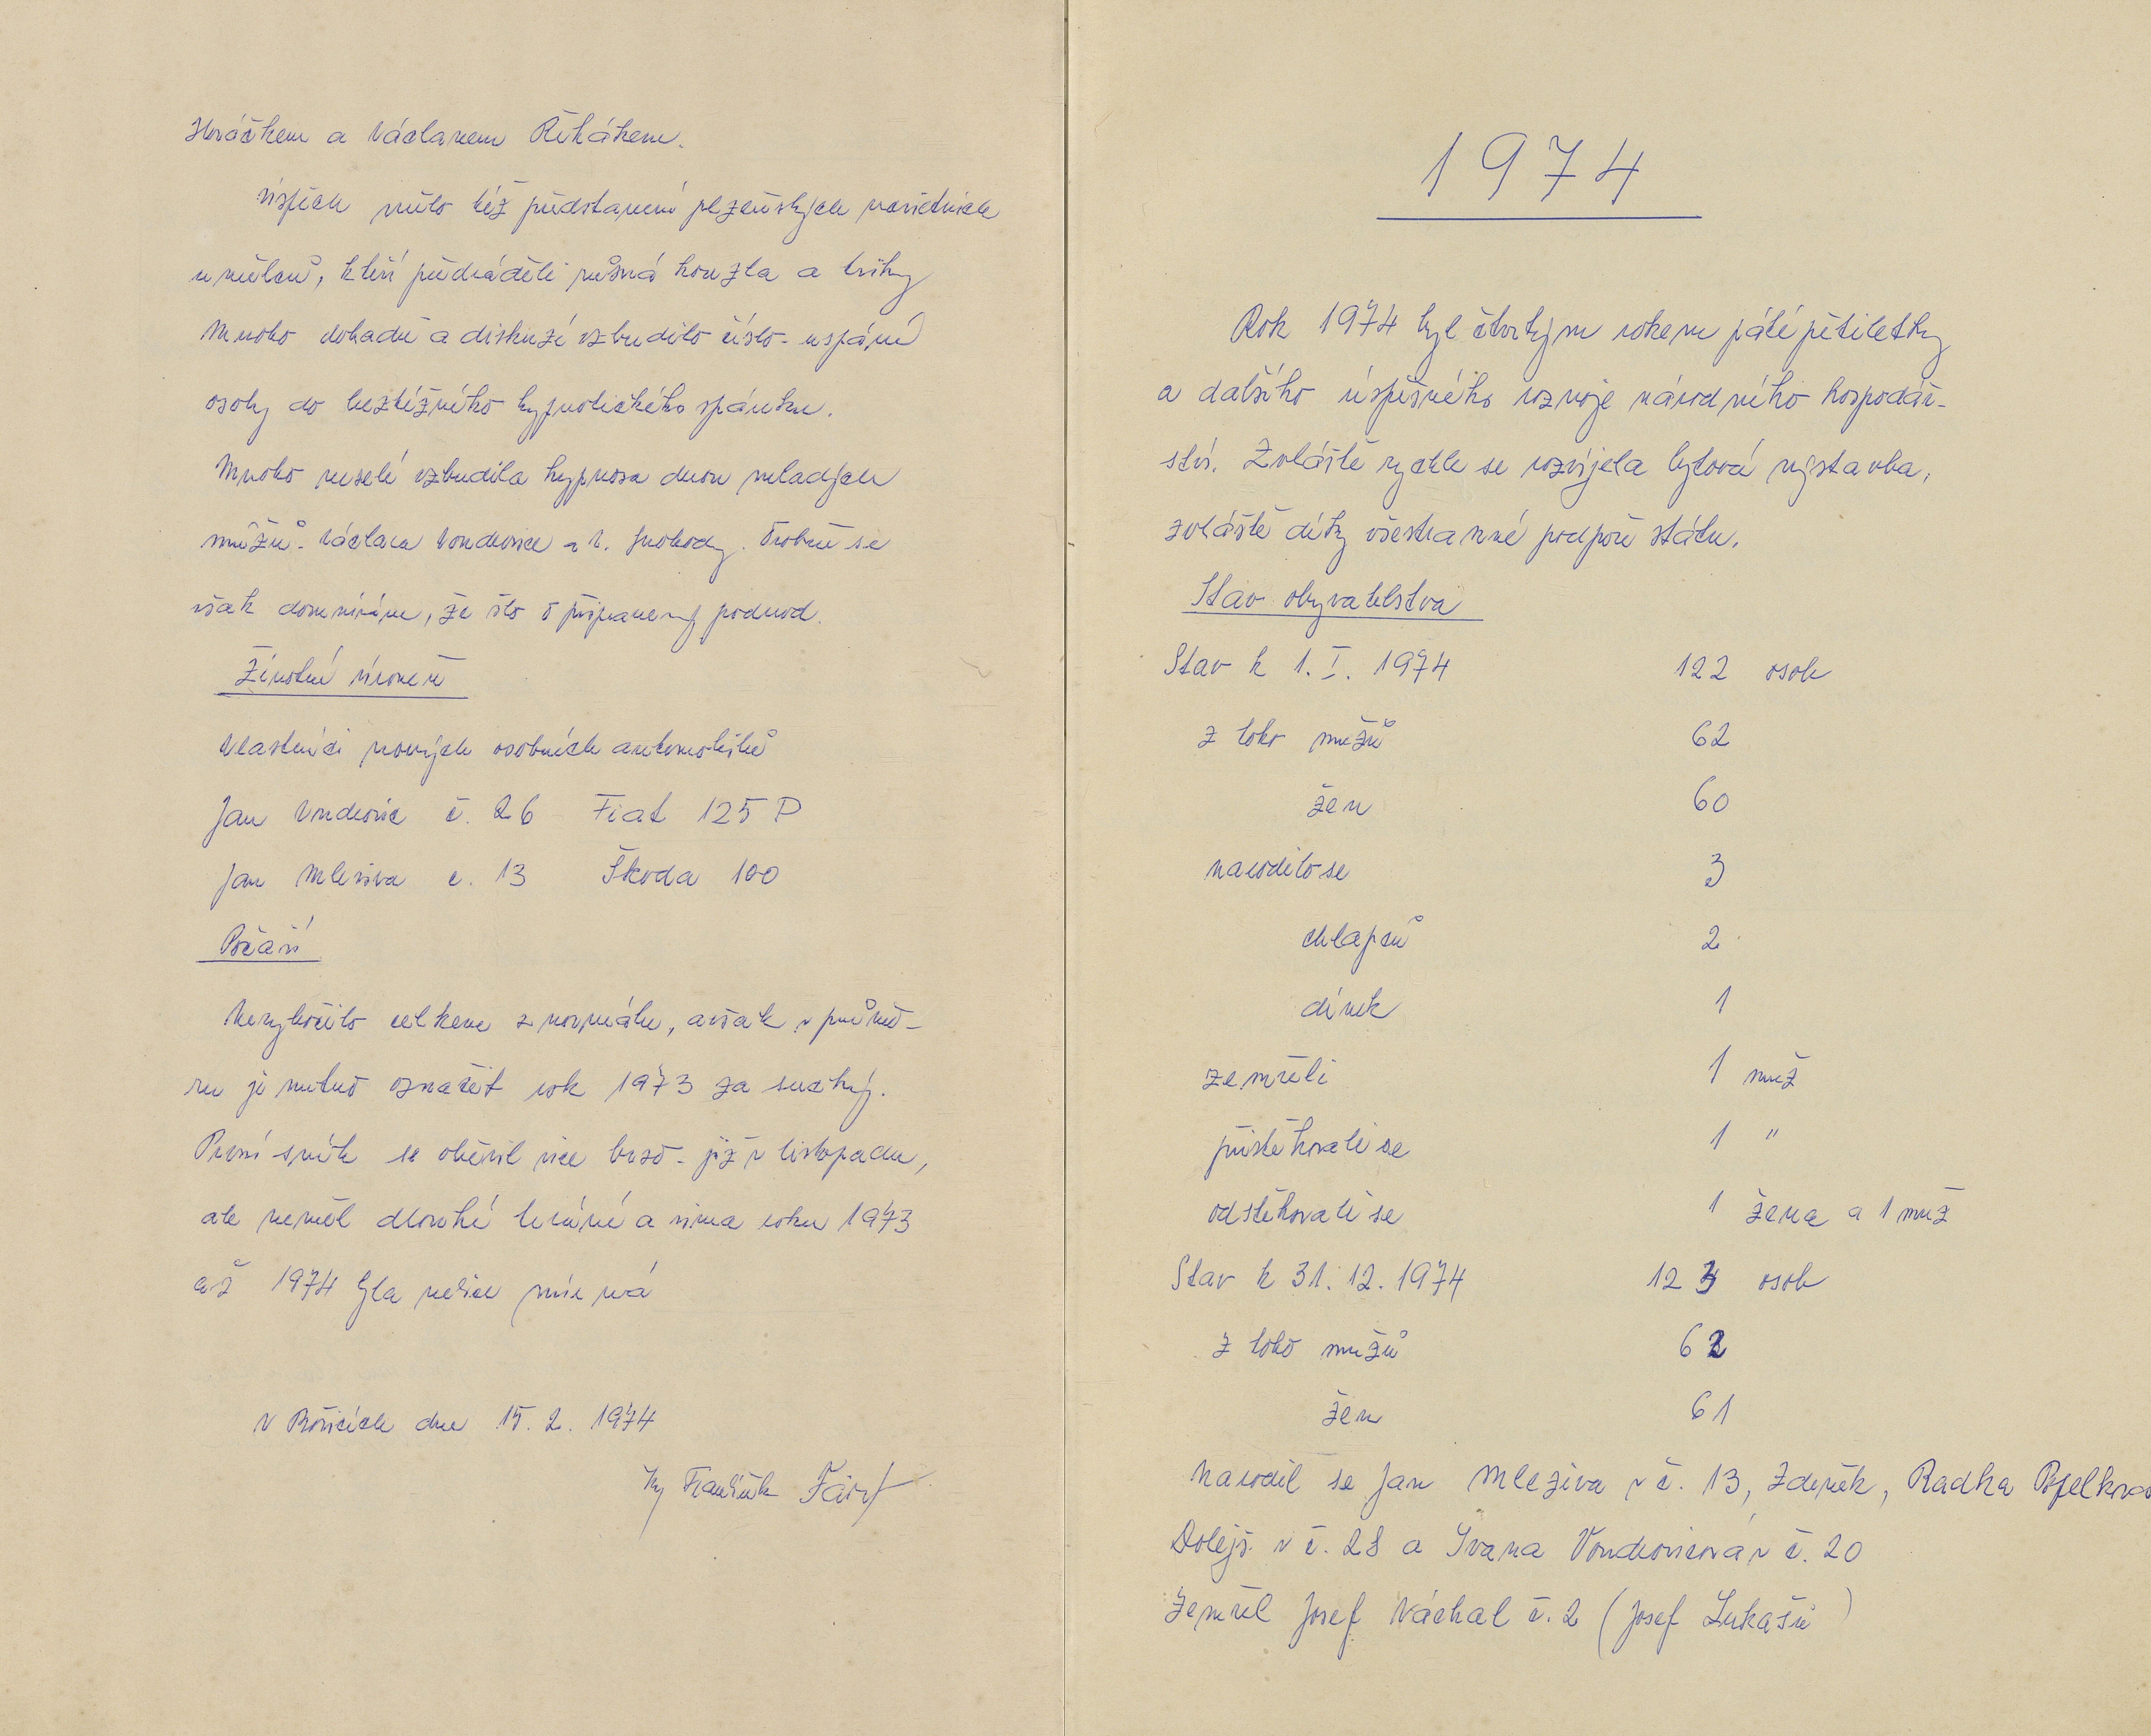 Horáčkem a Václavem Řihákem.
Úspěch mělo též představení plzeňských varietních
umělců, kteří předváděli různá kouzla a triky
Mnoho dohadů a diskuzí vzbudilo číslo - uspání
osoby do beztížného hypnotického spánku.
Mnoho veselí vzbudila hypnosa dvou mladých
mužů - Václava Vondrovice a V. Svobody. Osobně se
však domnívám, že šlo o připravený podvod.
Životní úroveň
Vlastníci nových osobních automobilů
Jan Vondrovic č. 26 Fiat 125 P
Jan Mleziva č. 13 Škoda 100
Počasí
Nevybočilo celkem z normálu, avšak v průmě-
ru je nutno označit rok 1973 za suchý.
První sníh se objevil sice brzo - již v listopadu,
ale neměl dlouhé trvání a zima roku 1973
až 1974 byla velice mírná
V dne 15. 2. 1974
kr František
1974
Rok 1974 byl čtvrtým rokem páté pětiletky
a dalšího úspěšného rozvoje národního hospodář-
ství. Zvláště rychle se rozvíjela bytová výstavba,
zvláště díky všestranné podpoře státu.
Stav obyvatelstva
Stav k 1. I. 1974 122 osob
z toho mužů 62
žen 60
narodilo se 3
chlapců 2
dívek 1
zemřeli 1 muž
přistěhovali se 1 "
odstěhovali se 1 žena a 1 muž
Stav k 31. 12. 1974 123 osob
z toho mužů 62
žen 61
Narodil se Jan Mleziva v č. 13, Zdeněk, Radka
Dolejš v č. 28 a Ivana Vondrovicová v č. 20
Zemřel Josef Váchal č. 2 (Josef Lukašů)